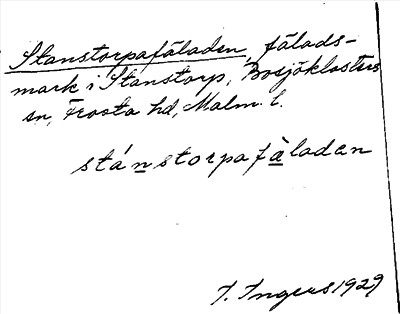 Stanstorpafäladen, fälads-
mark i Stanstorp, Bosjöklosters
sn, Frosta hd, Malm. l.
stánstorpafàladen
I. Ingers 1929